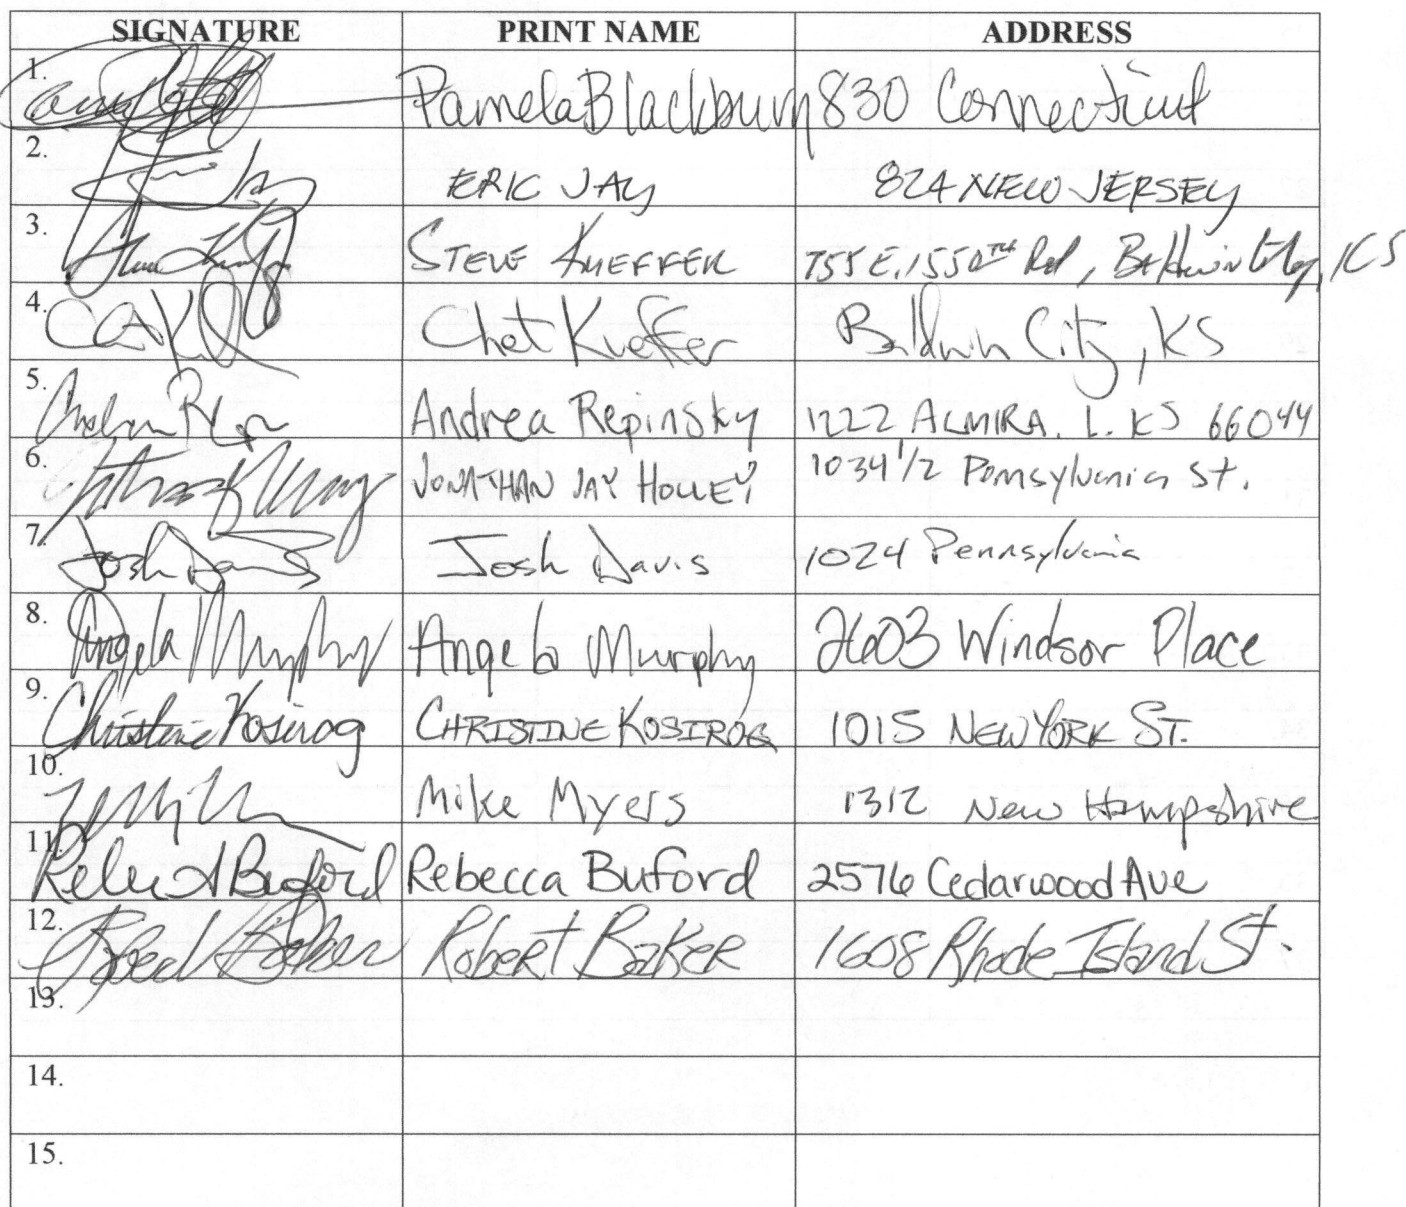 SIGNATURE PRINT NAME ADDRESS
1. Pamela Blackburn 830 Connecticut
2. Eric Jay ERIC JAY 824 NEW JERSEY
3. STEVE KUEFFER 755 E. 1550TH Rd, Baldwin City, KS
4. Chet Kueffer Baldwin City, KS
5. Andrea Repinsky 1222 ALMIRA. L. KS 66044
6. JONATHAN JAY HOLLEY 1034 1/2 Pennsylvania St.
7. Josh Davis Josh Davis 1024 Pennsylvania
8. Angela Murphy Angela Murphy 2603 Windsor Place
9. Christine Kosirog CHRISTINE KOSIROG 1015 NEW YORK ST.
10. Mike Myers 1312 New Hampshire
11. Rebecca Buford 2576 Cedarwood Ave
12. Robert Baker Robert BaKER 1608 Rhode Island St.
13.
14.
15.